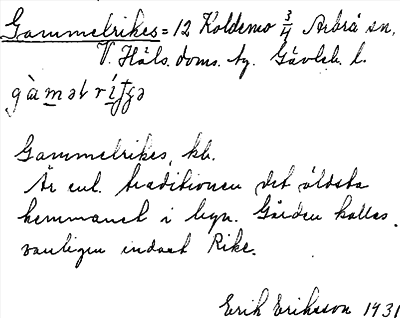 Gammelrikes = 12 Koldemo 3/4 Arbrå sn,
V. Häls. doms. tg. Gävleb. l.
Gammelrikes, kb.
Är enl. traditionen det äldsta
hemmanet i byn. Gården kallas
vanligen endast Rike.
Erik Eriksson 1931